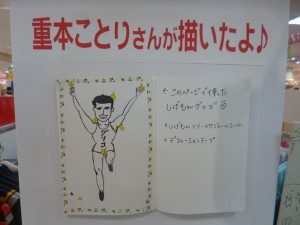 重本ことりさんが描いたよ♪
← このページで使った
しげもんグッズ
・しげもんマソールサビレールシール
・デコレーションテープ